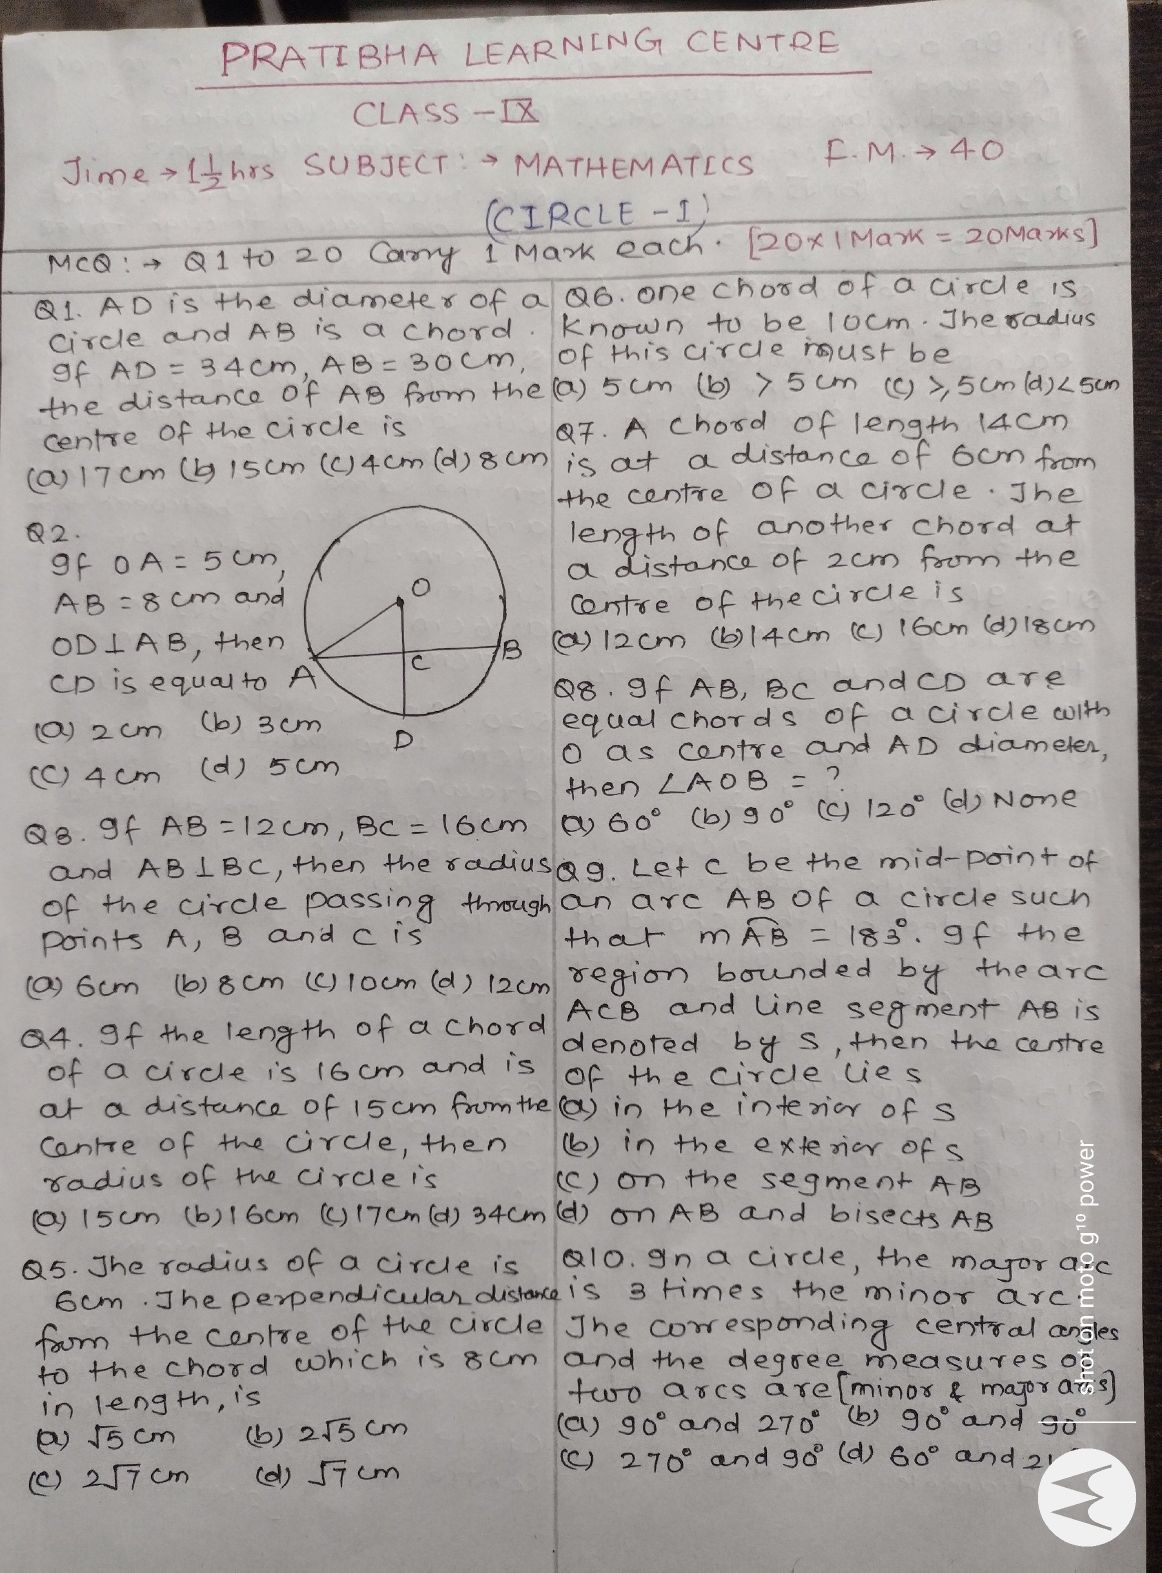 PRATIBHA LEARNING CENTRE
CLASS - IX
Time → 1 1/2 hrs SUBJECT: → MATHEMATICS F.M. → 40
(CIRCLE - I)
MCQ: → Q1 to 20 Carry 1 Mark each. [20 x 1 Mark = 20 Marks]
Q1. AD is the diameter of a
circle and AB is a chord.
If AD = 34 cm, AB = 30 cm,
the distance of AB from the
centre of the circle is
(a) 17 cm (b) 15 cm (c) 4 cm (d) 8 cm
Q2.
If OA = 5 cm,
AB = 8 cm and
OD ⊥ AB, then
CD is equal to
(a) 2 cm (b) 3 cm
(c) 4 cm (d) 5 cm
O
A
C
B
D
Q3. If AB = 12 cm, BC = 16 cm
and AB ⊥ BC, then the radius
of the circle passing through
points A, B and C is
(a) 6 cm (b) 8 cm (c) 10 cm (d) 12 cm
Q4. If the length of a chord
of a circle is 16 cm and is
at a distance of 15 cm from the
centre of the circle, then
radius of the circle is
(a) 15 cm (b) 16 cm (c) 17 cm (d) 34 cm
Q5. The radius of a circle is
6 cm. The perpendicular distance
from the centre of the circle
to the chord which is 8 cm
in length, is
(a) √5 cm (b) 2√5 cm
(c) 2√7 cm (d) √7 cm
Q6. One chord of a circle is
known to be 10 cm. The radius
of this circle must be
(a) 5 cm (b) > 5 cm (c) ≥ 5 cm (d) < 5 cm
Q7. A chord of length 14 cm
is at a distance of 6 cm from
the centre of a circle. The
length of another chord at
a distance of 2 cm from the
centre of the circle is
(a) 12 cm (b) 14 cm (c) 16 cm (d) 18 cm
Q8. If AB, BC and CD are
equal chords of a circle with
O as centre and AD diameter,
then ∠AOB = ?
(a) 60° (b) 90° (c) 120° (d) None
Q9. Let C be the mid-point of
an arc AB of a circle such
that m AB = 183°. If the
region bounded by the arc
ACB and line segment AB is
denoted by S, then the centre
of the circle lies
(a) in the interior of S
(b) in the exterior of S
(c) on the segment AB
(d) on AB and bisects AB
Q10. In a circle, the major arc
is 3 times the minor arc.
The corresponding central angles
and the degree measures of
two arcs are [minor & major arcs]
(a) 90° and 270° (b) 90° and 90°
(c) 270° and 90° (d) 60° and
shot on moto g¹⁰ power